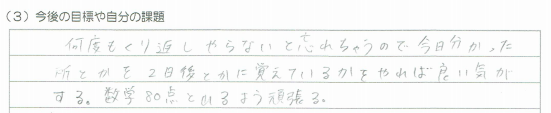 (3) 今後の目標や自分の課題
何度もくり返しやらないと忘れちゃうので今日分かった
所とかを2日後とかに覚えているかをやれば良い気が
する。数学80点とれるよう頑張る。